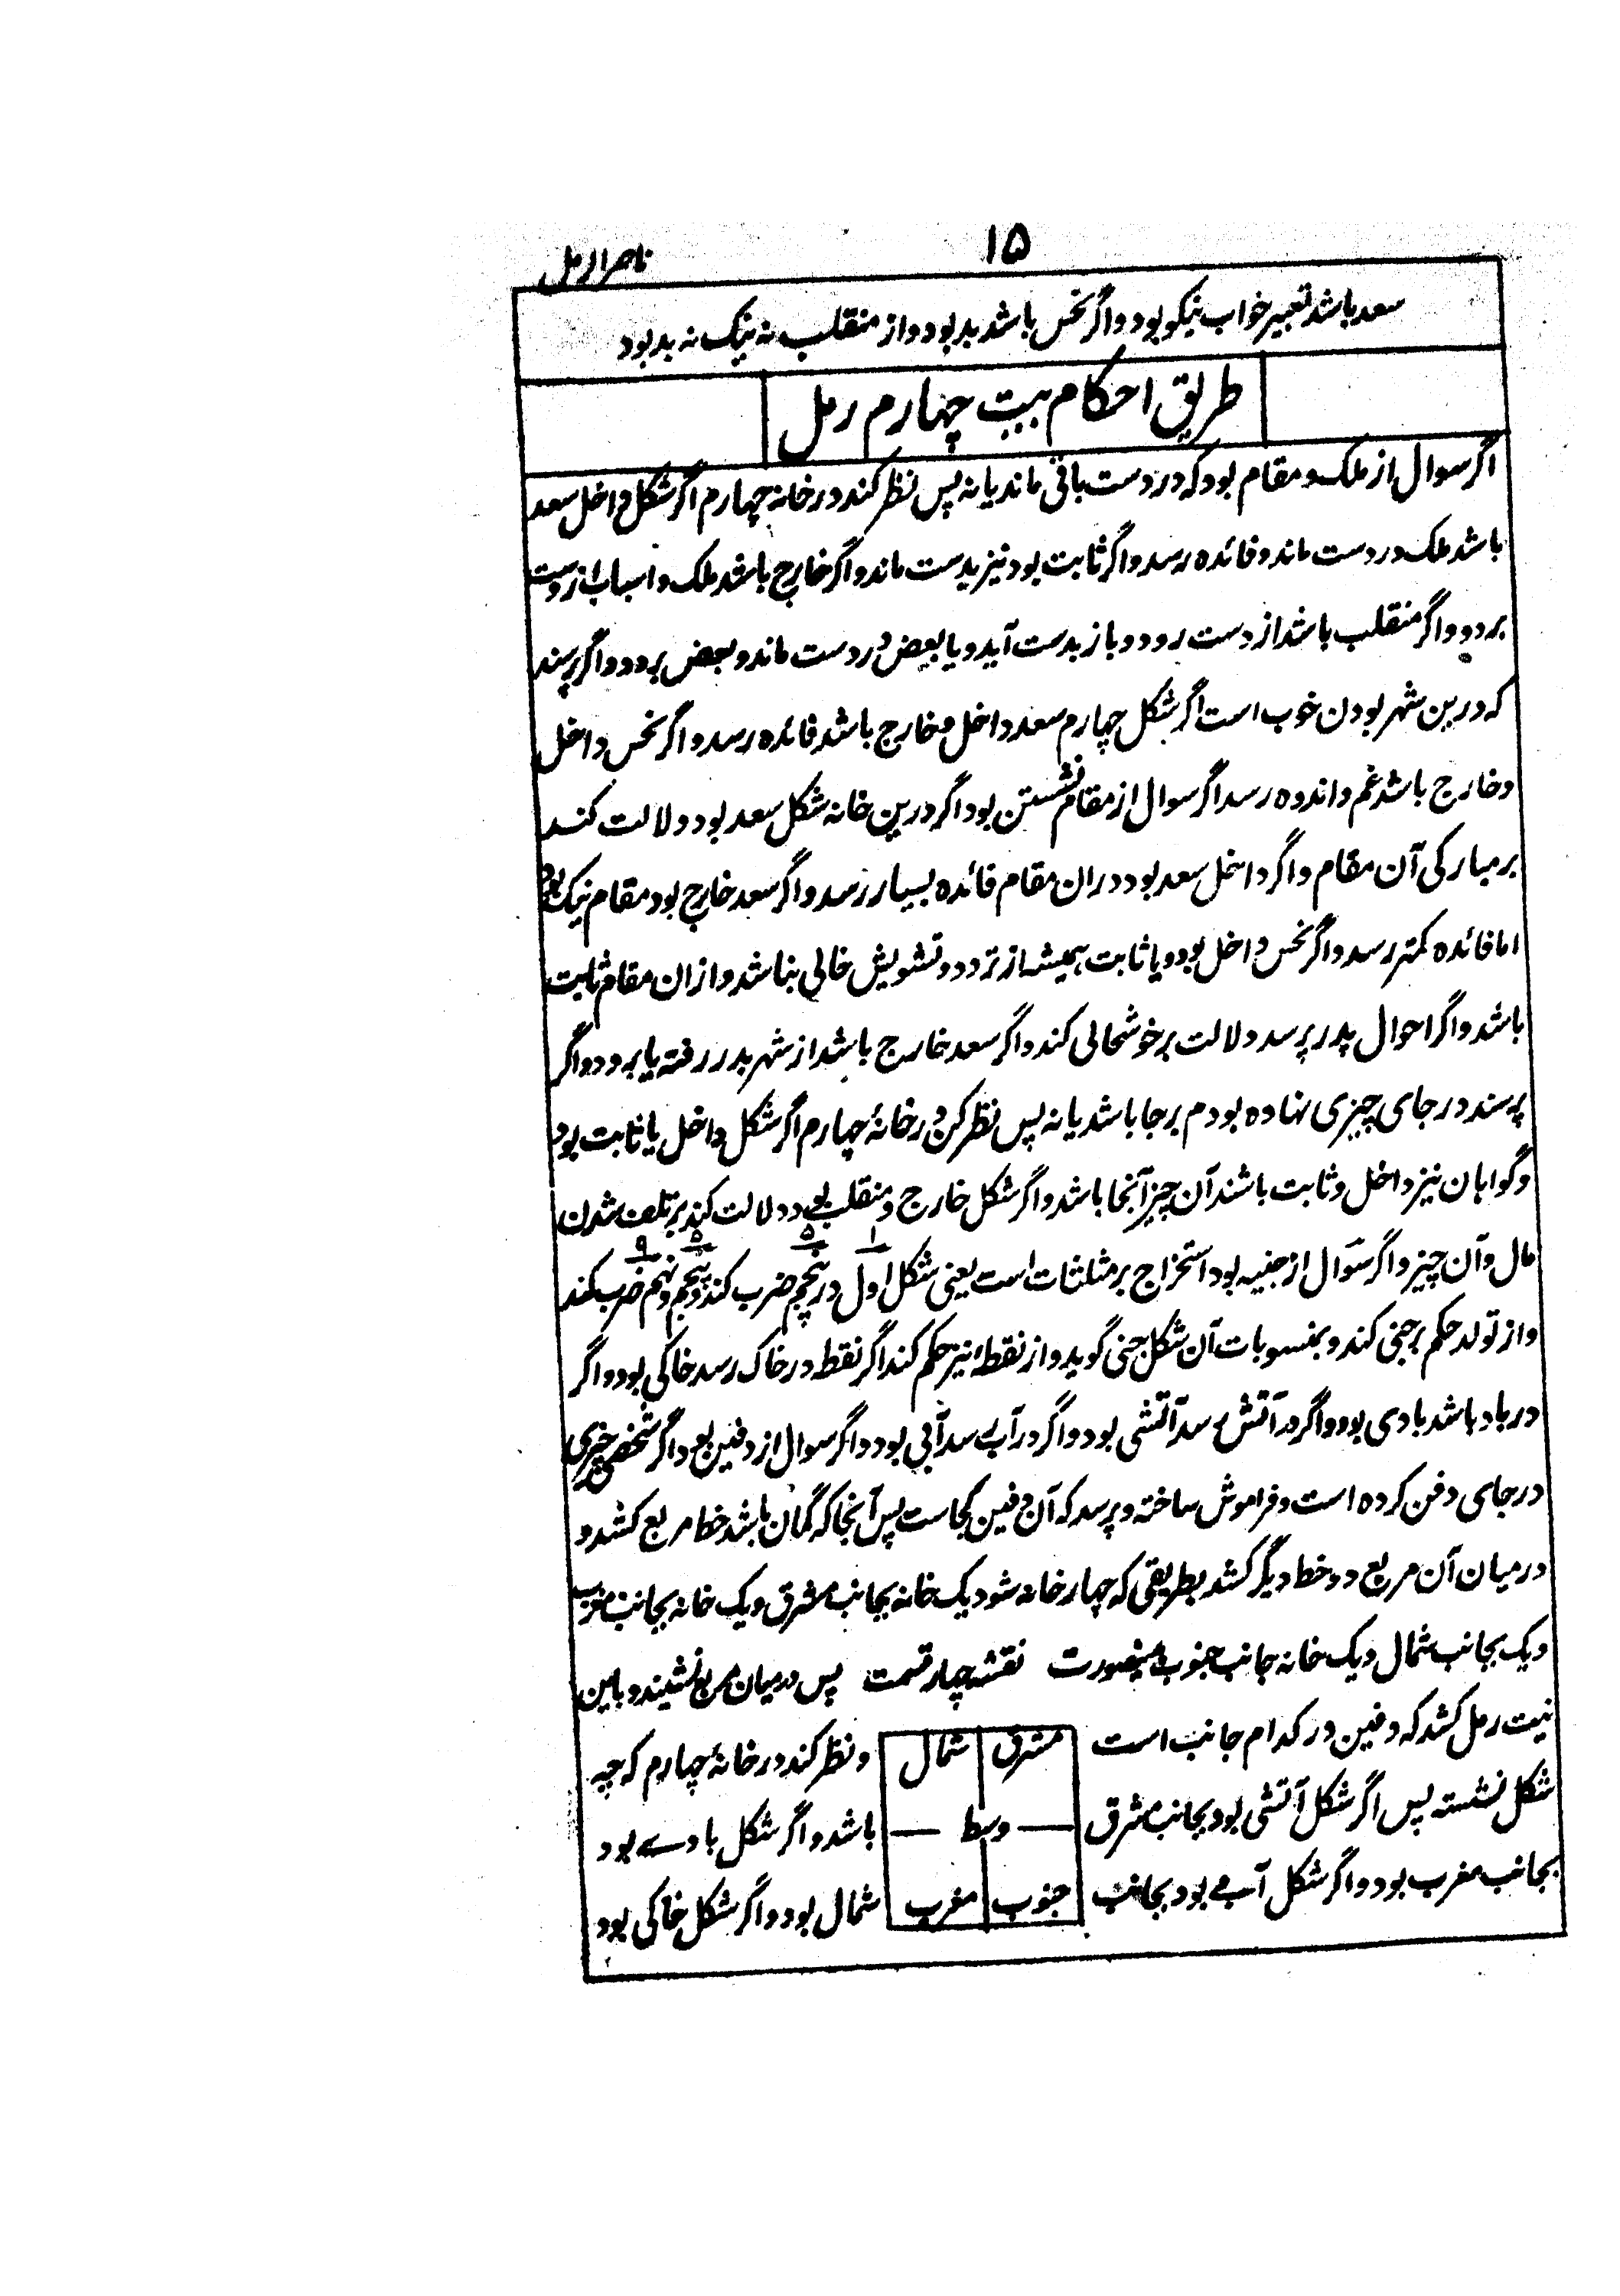 ۱۵
ناصر الرمل
سعد باشد تعبیر خواب نیکو بود و اگر نحس باشد بد بود و از منقلب نه نیک نه بد بود
طریق احکام بیت چهارم رمل
اگر سوال از ملک و مقام بود که در دست باقی ماند یا نه پس نظر کند در خانه چهارم اگر شکل داخل سعد
باشد ملک در دست ماند و فائده رسد و اگر ثابت بود نیز بدست ماند و اگر خارج باشد ملک و اسباب از دست
برود و اگر منقلب باشد از دست رود و باز بدست آید و یا بعض در دست ماند و بعض برود و اگر پرسند
که درین شهر بودن خوب است اگر شکل چهارم سعد داخل و خارج باشد فائده رسد و اگر نحس داخل
و خارج باشد غم و اندوه رسد اگر سوال از مقام نشستن بود اگر درین خانه شکل سعد بود دلالت کند
بر مبارکی آن مقام و اگر داخل سعد بود دران مقام فائده بسیار رسد و اگر سعد خارج بود مقام نیک بود
اما فائده کمتر رسد و اگر نحس داخل بود و یا ثابت همیشه از تردد و تشویش خالی نباشد و ازان مقام ثابت
باشد و اگر احوال پدر پرسد دلالت بر خوشحالی کند و اگر سعد خارج باشد از شهر بدر رفته یا برود و اگر
پرسند در جای چیزی نهاده بودم برجا باشد یا نه پس نظر کن در خانهٔ چهارم اگر شکل داخل یا ثابت بود
و گواهان نیز داخل و ثابت باشند آن چیز آنجا باشد و اگر شکل خارج و منقلب بود دلالت کند بر تلف شدن
مال و آن چیز و اگر سوال از جنیه بود استخراج بر مثلثات است یعنی شکل اول ۱ در پنجم ۵ ضرب کند و پنجم ۵ و نهم ۹ ضرب کند
و از تولد حکم بر جنی کند و بمنسوبات آن شکل جنی گوید و از نقطهٔ نیز حکم کند اگر نقطه در خاک رسد خاکی بود و اگر
در باد باشد بادی بود و اگر در آتش رسد آتشی بود و اگر در آب رسد آبی بود و اگر سوال از دفین بود و اگر شخصی چیزی
در جای دفن کرده است و فراموش ساخته و پرسد که آن دفین کجاست پس آنجا که گمان باشد خط مربع کشد و
درمیان آن مربع دو خط دیگر کشد بطریقی که چهار خانه شود یک خانه بجانب مشرق و یک خانه بجانب مغرب
و یک بجانب شمال و یک خانه جانب جنوب بدینصورت نقشه چهار قسمت پس درمیان مربع نشیند و باین
نیت رمل کشد که دفین در کدام جانب است مشرق شمال و نظر کند در خانهٔ چهارم که چه
شکل نشسته پس اگر شکل آتشی بود بجانب مشرق وسط باشد و اگر شکل بادے بود
بجانب مغرب بود و اگر شکل آبے بود بجانب جنوب مغرب شمال بود و اگر شکل خاکی بود